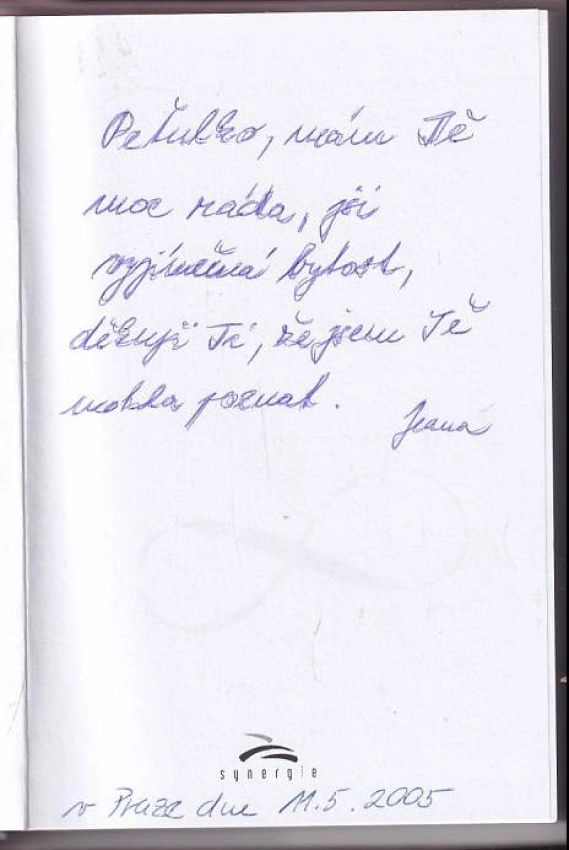 Peťulko, mám Tě
moc ráda, jsi
vyjímečná bytost,
děkuji Ti, že jsem Tě
mohla poznat.
Jeana
synergie
v Praze dne 11.5.2005